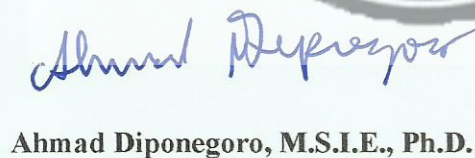 Ahmad Diponegoro
Ahmad Diponegoro, M.S.I.E., Ph.D.